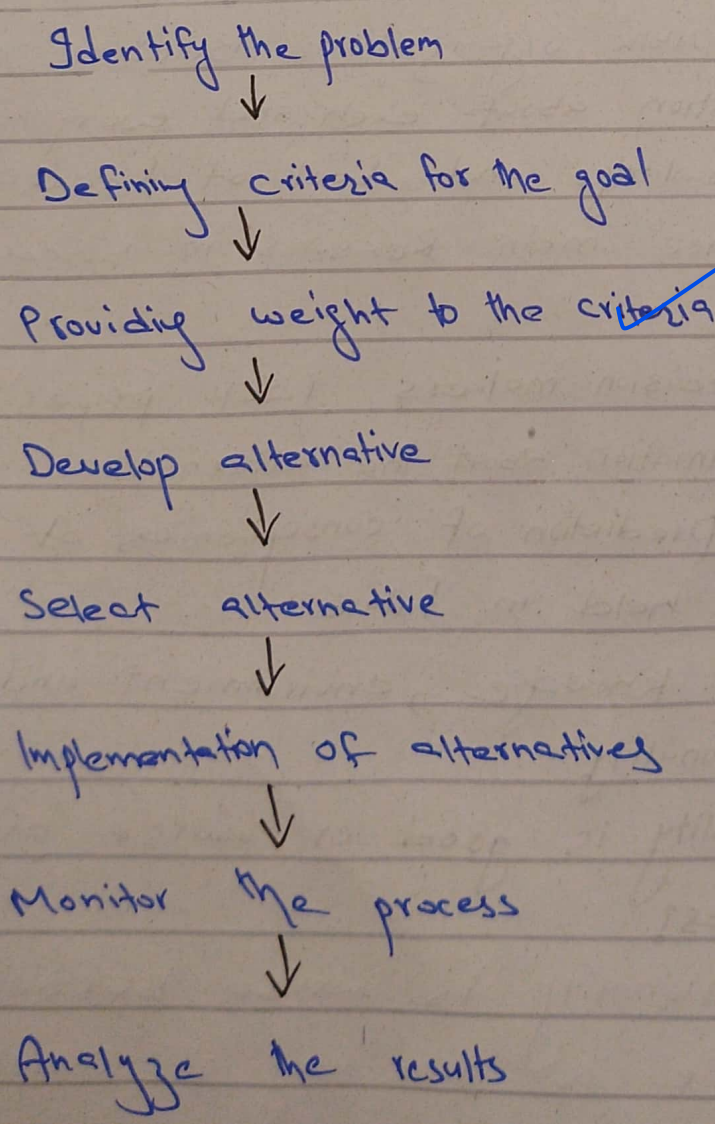 Identify the problem
Defining criteria for the goal
Providing weight to the criteria
Develop alternative
Select alternative
Implementation of alternatives
Monitor the process
Analyze the results